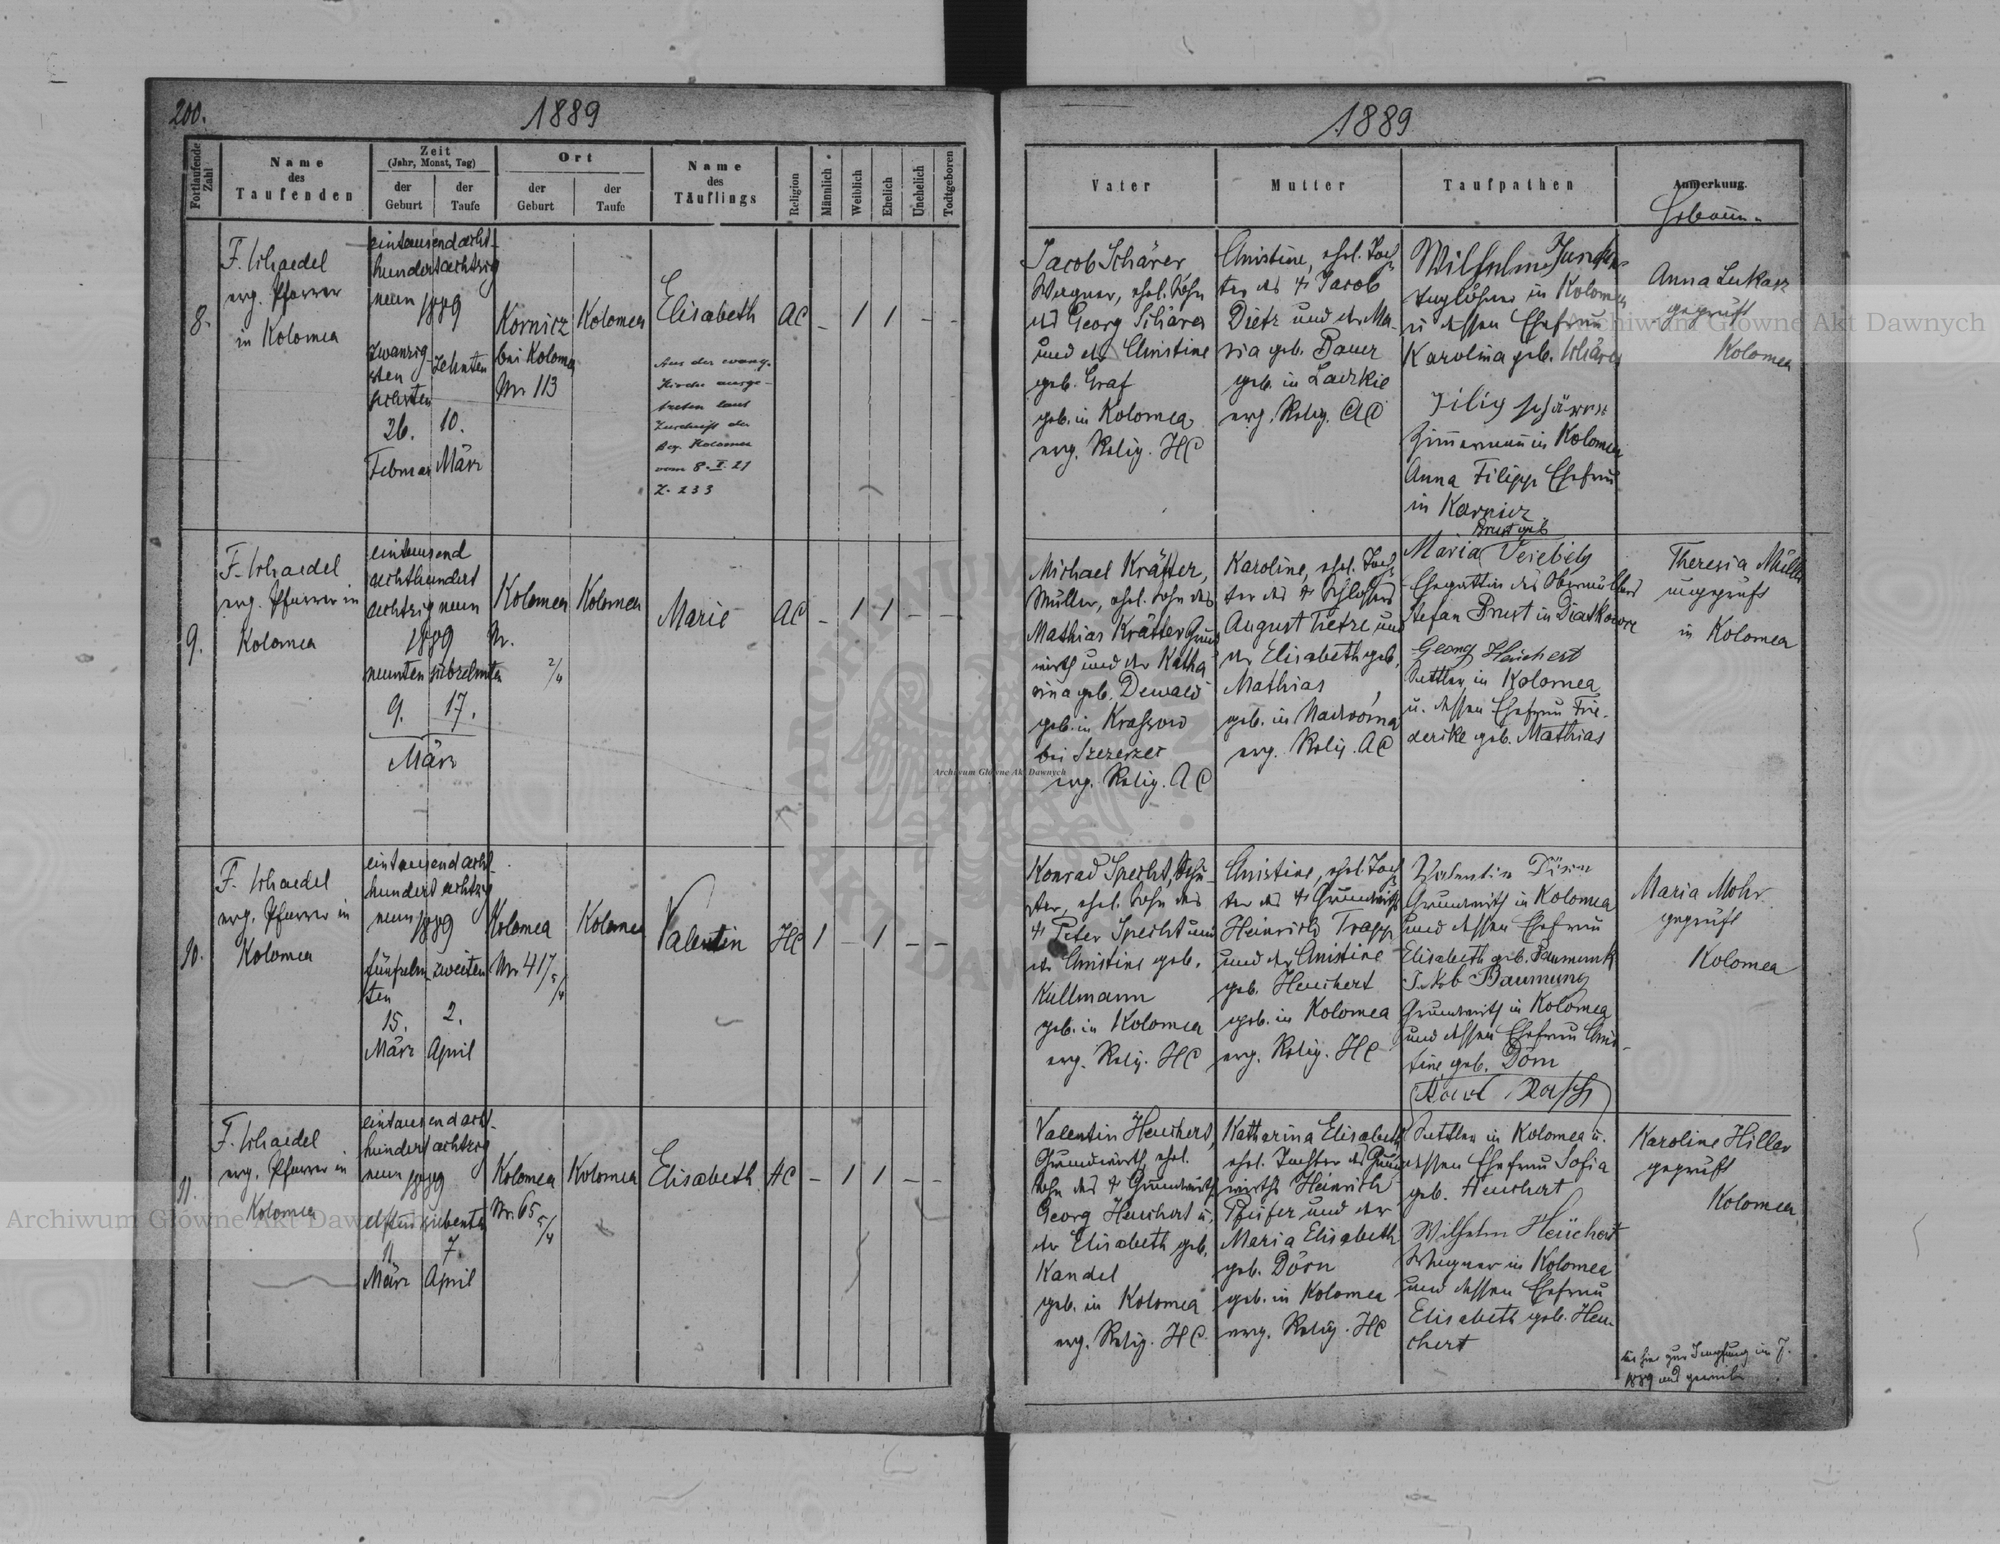 200.
1889
Fortlaufende Zahl
Name des Taufenden
Zeit
(Jahr, Monat, Tag)
der Geburt
der Taufe
Ort
der Geburt
der Taufe
Name des Täuflings
Religion
Männlich
Weiblich
Ehelich
Unehelich
Todtgeboren
8.
F. Schaedel
evg. Pfarrer
in Kolomea
eintausendacht-
hundertachtzig
neun 1889
zwanzig-
sten
sechsten
26.
Februar
zehnten
10.
März
Kornicz
bei Kolomea
Nr. 113
Kolomea
Elisabeth
Aus der evang.
Kirche ausge-
treten laut
Zuschrift der
Kolomea
vom 8. I. 21
Z. 233
AC
–
1
1
–
–
9.
F. Schaedel
evg. Pfarrer in
Kolomea
eintausend
achthundert
achtzig neun
1889
neunten siebzehnten
9. 17.
März
Kolomea
Nr.
2/4
Kolomea
Marie
AC
–
1
1
–
–
10.
F. Schaedel
evg. Pfarrer in
Kolomea
eintausendacht-
hundert achtzig
neun 1889
fünfzehn-
ten
15.
März
zweiten
2.
April
Kolomea
Nr. 417
5/4
Kolomea
Valentin
HC
1
–
1
–
–
11.
F. Schaedel
evg. Pfarrer in
Kolomea
eintausendacht-
hundert achtzig
neun 1889
elften siebenten
11.
März
7.
April
Kolomea
Nr. 65
5/4
Kolomea
Elisabeth
AC
–
1
1
–
–
1889
Vater
Mutter
Taufpathen
Anmerkung.
Jacob Schärer
Wagner, ehel. Sohn
des Georg Schärer
und der Christine
geb. Graf
geb. in Kolomea
evg. Relig. HC
Christine, ehel. Toch-
ter des † Jacob
Dietz und der Ma-
ria geb. Bauer
geb. in Laczkie
evg. Relig. AC
Wilhelm
Taglöhner in Kolomea
u. dessen Ehefrau
Karolina geb. Schärer
Filip Schärer
Zimmermann in Kolomea
Anna Filipp Ehefrau
in Kornicz
Anna Lukasz
geprüft
Kolomea
Michael Krätter,
Müller, ehel. Sohn des
Mathias Krätter Grund-
wirth und der Katha-
rina geb. Dewald
geb. in
bei Szczerzec
evg. Relig. AC
Karoline, ehel. Toch-
ter des † Schlossers
August Tietze und
der Elisabeth geb.
Mathias
geb. in Nadworna
evg. Relig. AC
Brust geb.
Maria
Ehegattin des Obermüllers
Stefan Brust in Diatkowce
Georg Heuchert
Sattler in Kolomea
u. dessen Ehefrau Frie-
derike geb. Mathias
Theresia Müller
ungeprüft
in Kolomea
Konrad Specht, Schu-
ster, ehel. Sohn des
† Peter Specht und
der Christine geb.
Kullmann
geb. in Kolomea
evg. Relig. HC
Christine, ehel. Toch-
ter des † Grundwirths
Heinrich Trapp
und der Christine
geb. Heuchert
geb. in Kolomea
evg. Relig. HC
Valentin
Grundwirth in Kolomea
und dessen Ehefrau
Elisabeth geb.
Jakob Baumung
Grundwirth in Kolomea
und dessen Ehefrau Chris-
tine geb. Dorn
Maria Mohr
geprüft
Kolomea
Valentin Heuchert,
Grundwirth, ehel.
Sohn des † Grundwirths
Georg Heuchert u.
der Elisabeth geb.
Kandel
geb. in Kolomea
evg. Relig. HC
Katharina Elisabeth
ehel. Tochter des Grund-
wirths Heinrich
Pfeifer und der
Maria Elisabeth
geb. Dorn
geb. in Kolomea
evg. Relig. HC
Sattler in Kolomea u.
dessen Ehefrau Sofia
geb. Heuchert
Wilhelm Heuchert
Wagner in Kolomea
und dessen Ehefrau
Elisabeth geb. Heu-
chert
Karoline Hiller
geprüft
Kolomea
bis hier zur Impfung im J.
1889
Archiwum Główne Akt Dawnych
Archiwum Główne Akt Dawnych
Archiwum Główne Akt Dawnych